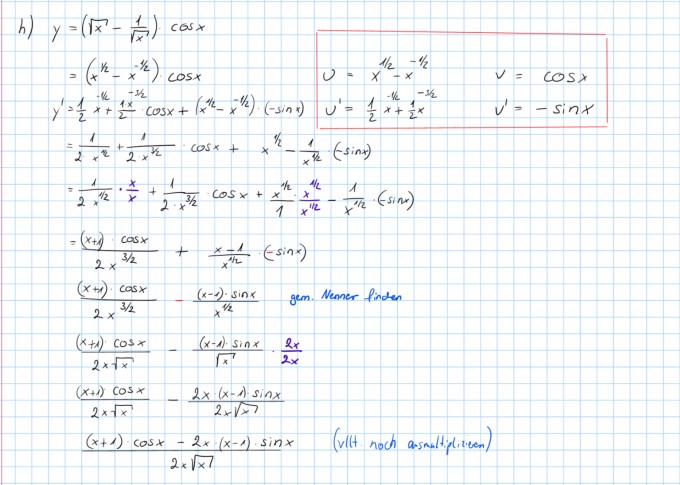 h) y = (√x - 1/√x) · cosx
= (x^1/2 - x^-1/2) · cosx
u = x^1/2 - x^-1/2 v = cosx
u' = 1/2 x^-1/2 + 1/2 x^-3/2 v' = -sinx
y' = 1/2 x^-1/2 + 1x^-3/2/2 · cosx + (x^1/2 - x^-1/2) · (-sinx)
= 1/(2 x^1/2) + 1/(2 x^3/2) · cosx + x^1/2 - 1/x^1/2 · (-sinx)
= 1/(2 x^1/2) · x/x + 1/(2·x^3/2) · cosx + x^1/2/1 · x^1/2/x^1/2 - 1/x^1/2 · (-sinx)
= (x+1) · cosx/(2x^3/2) + (x-1)/x^1/2 · (-sinx)
(x+1) · cosx/(2x^3/2) - (x-1) · sinx/x^1/2 gem. Nenner finden
(x+1) · cosx/(2x√x) - (x-1) · sinx/√x · 2x/2x
(x+1) cosx/(2x√x) - 2x · (x-1) sinx/(2x√x)
((x+1) · cosx - 2x · (x-1) · sinx)/(2x√x) (vllt noch ausmultiplizieren)